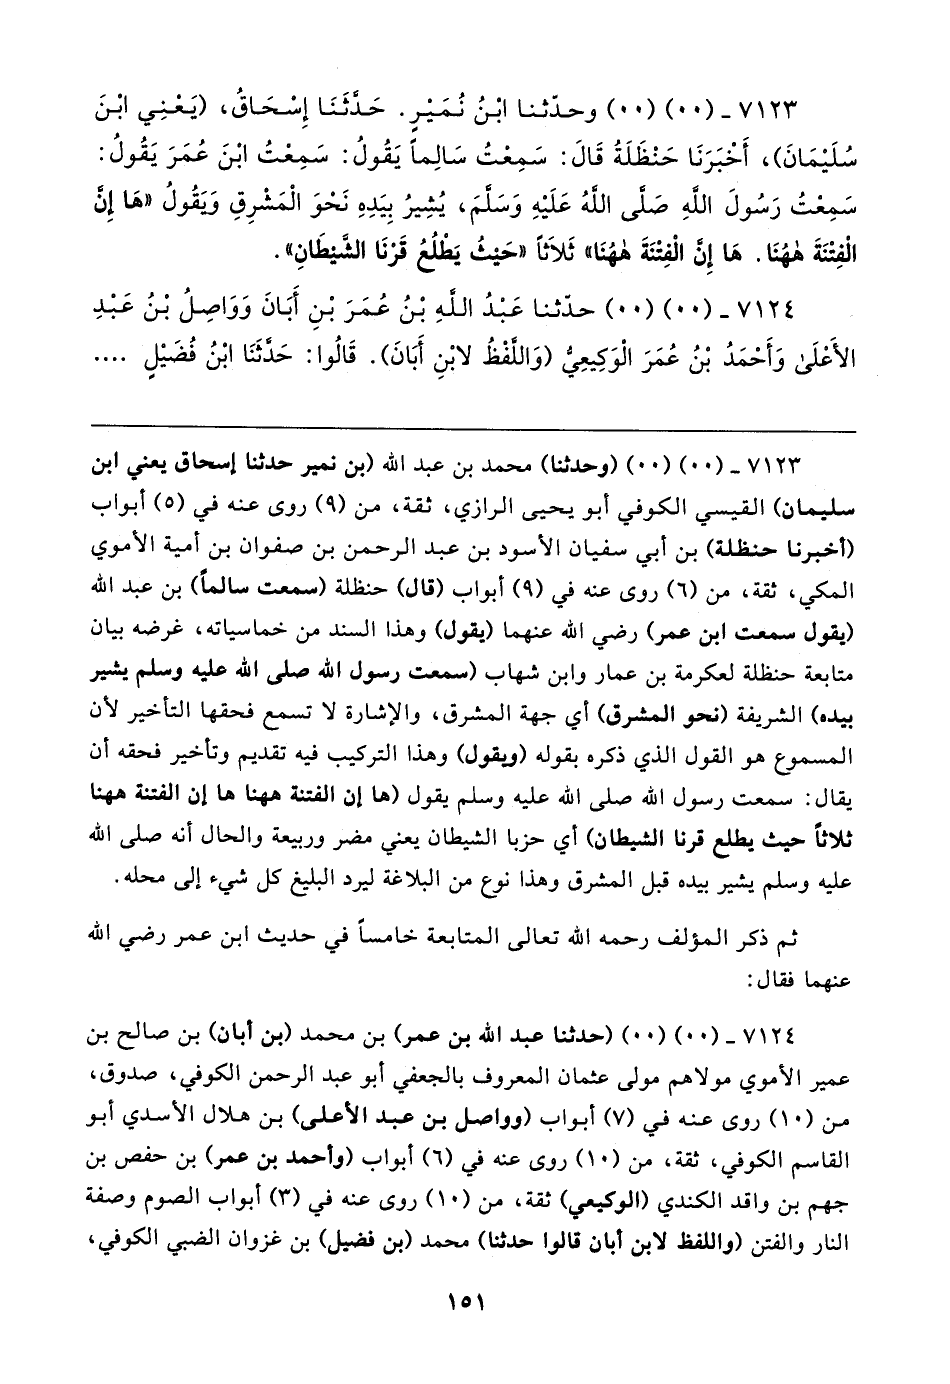 ٧١٢٣ - (٠٠) (٠٠) وحدّثنا ابْنُ نُمَيْرٍ. حَدَّثَنَا إِسْحَاقُ، (يَعْنِي ابْنَ
سُلَيْمَانَ)، أَخْبَرَنَا حَنْظَلَةُ قَالَ: سَمِعْتُ سَالِماً يَقُولُ: سَمِعْتُ ابْنَ عُمَرَ يَقُولُ:
سَمِعْتُ رَسُولَ اللَّهِ صَلَّى اللَّهُ عَلَيْهِ وَسَلَّمَ، يُشِيرُ بِيَدِهِ نَحْوَ الْمَشْرِقِ وَيَقُولُ «هَا إِنَّ
الْفِتْنَةَ هٰهُنَا. هَا إِنَّ الْفِتْنَةَ هٰهُنَا» ثَلَاثاً «حَيْثُ يَطْلُعُ قَرْنَا الشَّيْطَانِ».
٧١٢٤ - (٠٠) (٠٠) حدّثنا عَبْدُ اللَّهِ بْنُ عُمَرَ بْنِ أَبَانَ وَوَاصِلُ بْنُ عَبْدِ
الأَعْلَىٰ وَأَحْمَدُ بْنُ عُمَرَ الْوَكِيعِيُّ (وَاللَّفْظُ لابْنِ أَبَانَ). قَالُوا: حَدَّثَنَا ابْنُ فُضَيْلٍ ....
٧١٢٣ - (٠٠) (٠٠) (وحدثنا) محمد بن عبد الله (بن نمير حدثنا إسحاق يعني ابن
سليمان) القيسي الكوفي أبو يحيى الرازي، ثقة، من (٩) روى عنه في (٥) أبواب
(أخبرنا حنظلة) بن أبي سفيان الأسود بن عبد الرحمن بن صفوان بن أمية الأموي
المكي، ثقة، من (٦) روى عنه في (٩) أبواب (قال) حنظلة (سمعت سالماً) بن عبد الله
(يقول سمعت ابن عمر) رضي الله عنهما (يقول) وهذا السند من خماسياته، غرضه بيان
متابعة حنظلة لعكرمة بن عمار وابن شهاب (سمعت رسول الله صلى الله عليه وسلم يشير
بيده) الشريفة (نحو المشرق) أي جهة المشرق، والإشارة لا تسمع فحقها التأخير لأن
المسموع هو القول الذي ذكره بقوله (ويقول) وهذا التركيب فيه تقديم وتأخير فحقه أن
يقال: سمعت رسول الله صلى الله عليه وسلم يقول (ها إن الفتنة ههنا ها إن الفتنة ههنا
ثلاثاً حيث يطلع قرنا الشيطان) أي حزبا الشيطان يعني مضر وربيعة والحال أنه صلى الله
عليه وسلم يشير بيده قبل المشرق وهذا نوع من البلاغة ليرد البليغ كل شيء إلى محله.
ثم ذكر المؤلف رحمه الله تعالى المتابعة خامساً في حديث ابن عمر رضي الله
عنهما فقال:
٧١٢٤ - (٠٠) (٠٠) (حدثنا عبد الله بن عمر) بن محمد (بن أبان) بن صالح بن
عمير الأموي مولاهم مولى عثمان المعروف بالجعفي أبو عبد الرحمن الكوفي، صدوق،
من (١٠) روى عنه في (٧) أبواب (وواصل بن عبد الأعلى) بن هلال الأسدي أبو
القاسم الكوفي، ثقة، من (١٠) روى عنه في (٦) أبواب (وأحمد بن عمر) بن حفص بن
جهم بن واقد الكندي (الوكيعي) ثقة، من (١٠) روى عنه في (٣) أبواب الصوم وصفة
النار والفتن (واللفظ لابن أبان قالوا حدثنا) محمد (بن فضيل) بن غزوان الضبي الكوفي،
١٥١